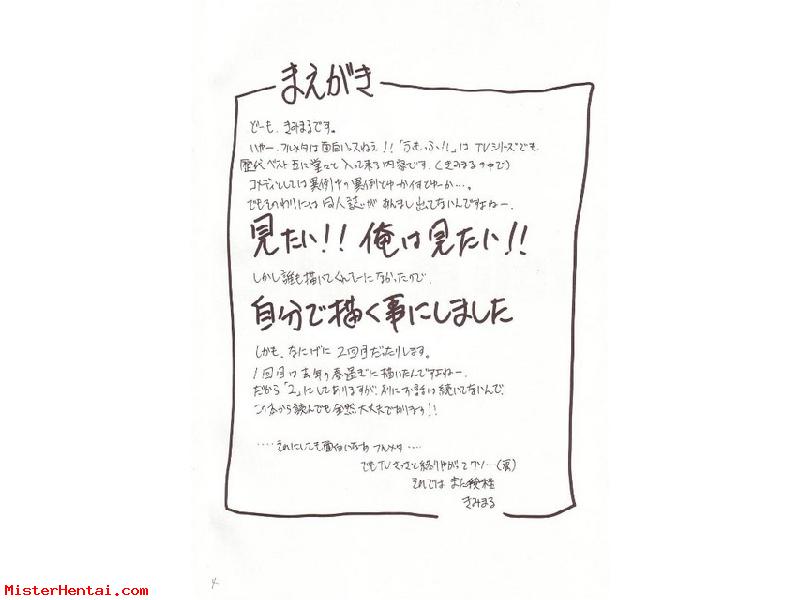 まえがき
どーも、きみまるです。
いやー、フルメタは面白いっスねぇ!!「ふもっふ!!」は TVシリーズでも
歴代ベスト五に 入って来る内容です。(きみまるの中で)
コメディとしては異例中の異例
でもそのわりには 同人誌があんまし出てないんですよねー。
見たい!! 俺は見たい!!
しかし誰も描いてくんねーになかったので
自分で描く事にしました
しかも、なにげに 2回目だったりします。
1回目は去年の春過ぎに描いたんですよねー。
だから「2」にしてありますが、別にお話は続いてないんで、
から読んでも全然大丈夫であります!!
‥‥それにしても面白いなあ フルメタ‥‥
でもTVさっさと終りやがって クソ…(涙)
それでは また
きみまる
4
MisterHentai.com